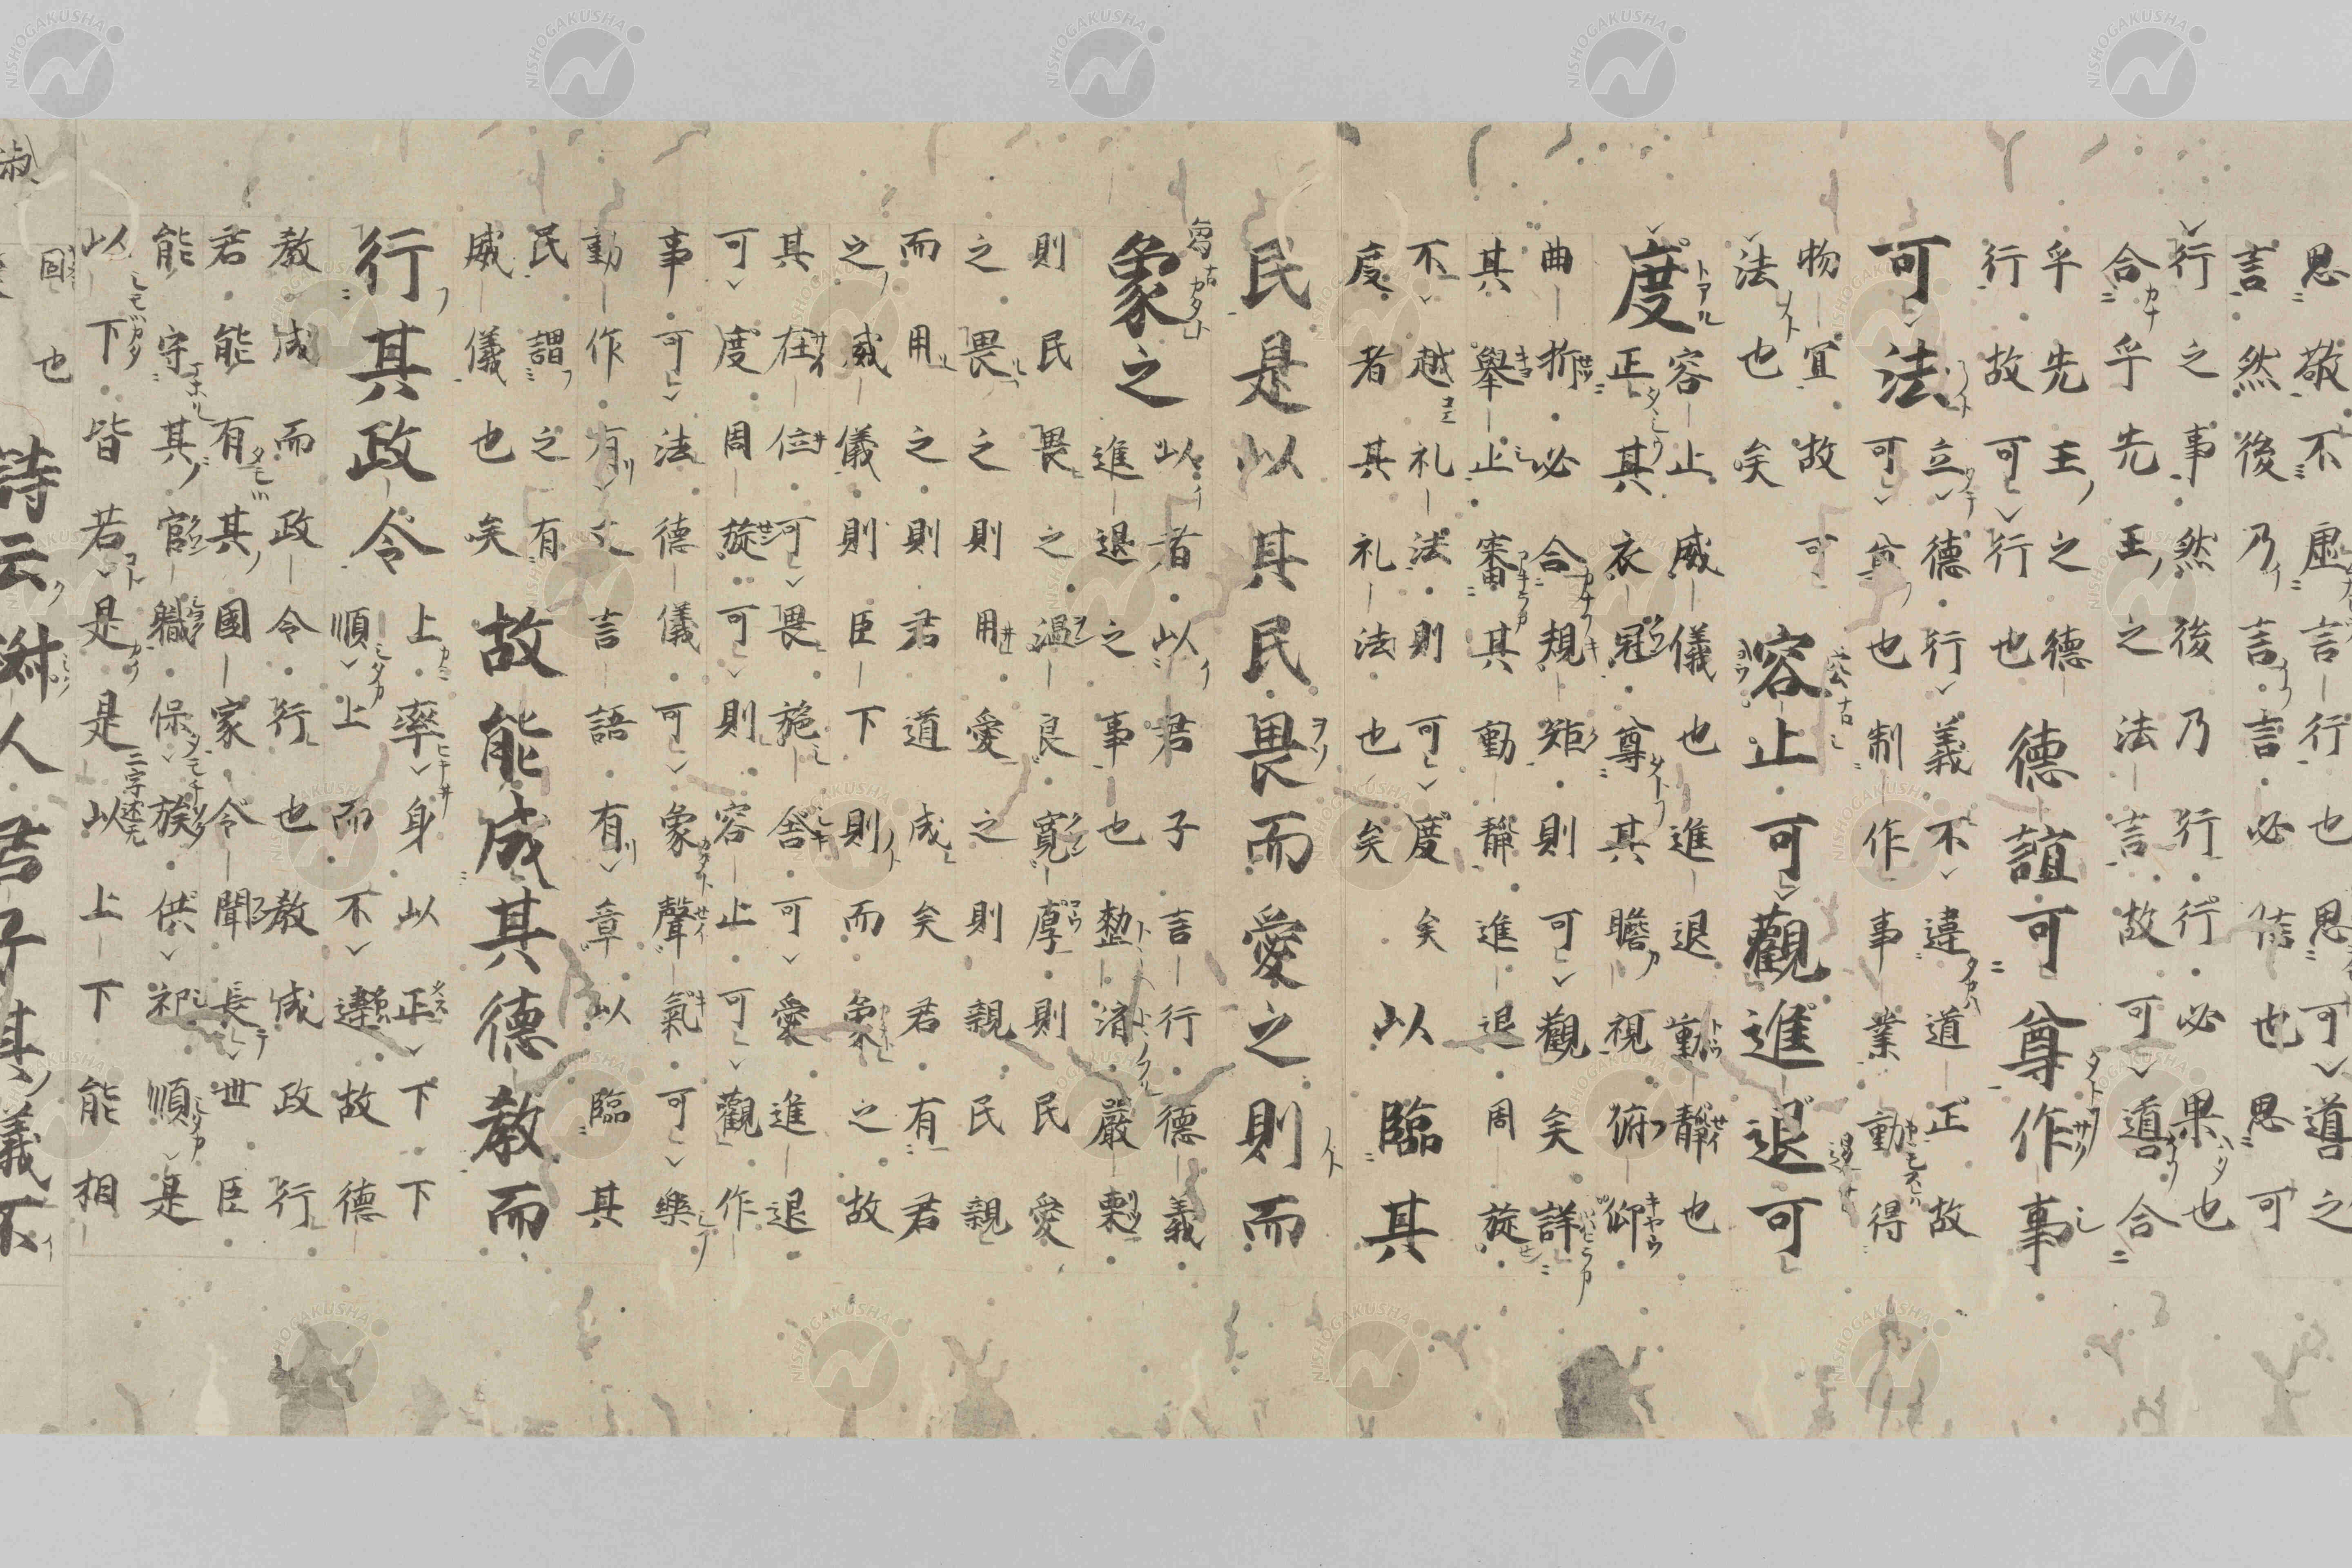 思敬不虛言行也思可噵之
言然後乃言言必信也思可
行之事然後乃行行必果也
合乎先王之法言故可噵合
乎先王之德
行故可行也
德誼可尊作事
可法
立德行義不違道正故
可尊也制作事業動得
物冝故可
法也矣
容止可觀進退可
度
容止威儀也進退動靜也
正其衣冠尊其瞻視俯仰
曲折必合規矩則可觀矣詳
其舉止審其動靜進退周旋
不越礼法則可度矣
度者其礼法也矣
以臨其
民是以其民畏而愛之則而
象之
以者以君子言行德義
進退之事也整濟嚴栗
則民畏之温良寬厚則民愛
之畏之則用愛之則親民親
而用之則君道成矣君有君
之威儀則臣下則而象之故
其在位可畏施舍可愛進退
可度周旋可則容止可觀作
事可法德儀可象聲氣可樂
動作有文言語有章以臨其
民謂之有
威儀也矣
故能成其德教而
行其政令
上率身以正下下
順上而不違故德
教成而政令行也教成政行
君能有其國家令聞長世臣
能守其官職保族供祀順是
以下皆若是是以上下能相
固也
詩云淑人君子其義不
淑